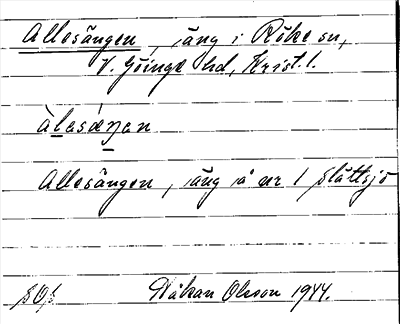 Allesängen, äng i Röke sn,
V. Göinge hd, Krist. l.
àlesǽŋen
Allesängen, äng å nr 1 Slättsjö
Håkan Olsson 1944.